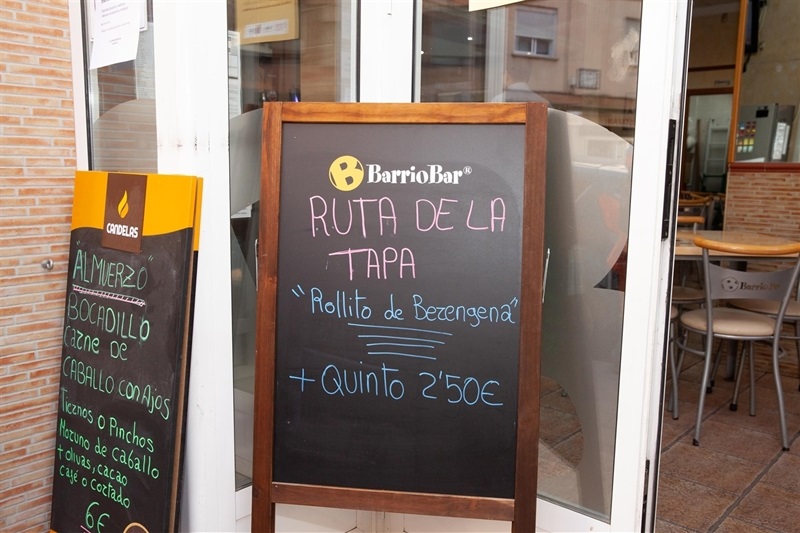 CANDELAS
"ALMUERZO"
BOCADILLO
CARNE DE
CABALLO con AJOS
TIERNOS O PINCHOS
MORUNO DE CABALLO
+ olivas, cacao
café o cortado
6€
B BARRIOBAR®
RUTA DE LA
TAPA
"Rollito de Berengena"
+ QUINTO 2'50€